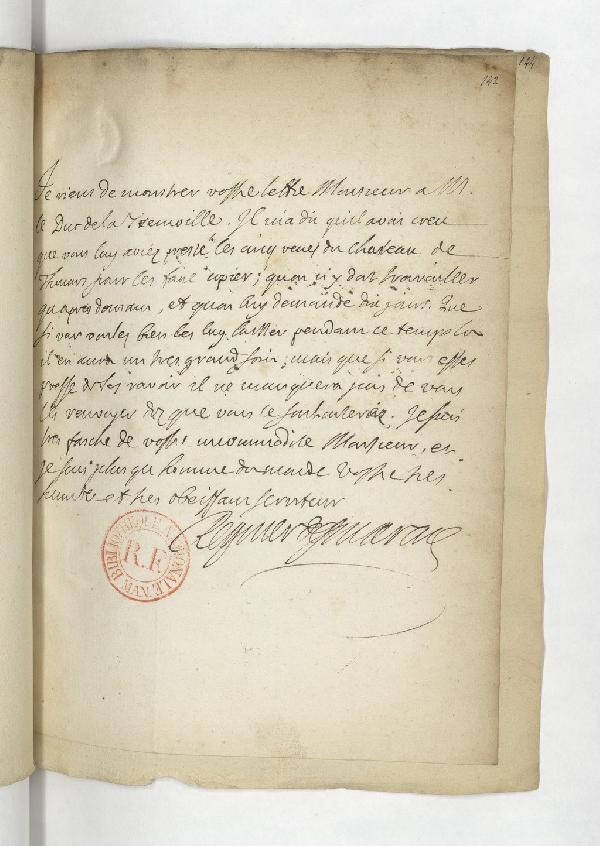 144
142
Je viens de monstrer vostre lettre Monsieur a M.
le Duc de la Tremoille. Il m'a dit qu'il avoit creu
que vous luy aviez presté les cinq veues du chateau de
Thouars pour les faire copier; quon n'y doit travailler
qu'apres demain, et quon luy demande dix jours. Que
si vous voulez bien les luy laisser pendant ce temps la
il en aura un tres grand soin; mais que si vous estes
pressé de les ravoir il ne manquera pas de vous
les renvoyer dez que vous le souhaiterez. Je suis
tres fasché de vostre incommodité Monsieur, et
je suis plus qu'homme du monde Vostre tres
humble et tres obeissant serviteur
Regnier Desmarais
BIBLIOTHEQUE NATIONALE MAN.
R.F.